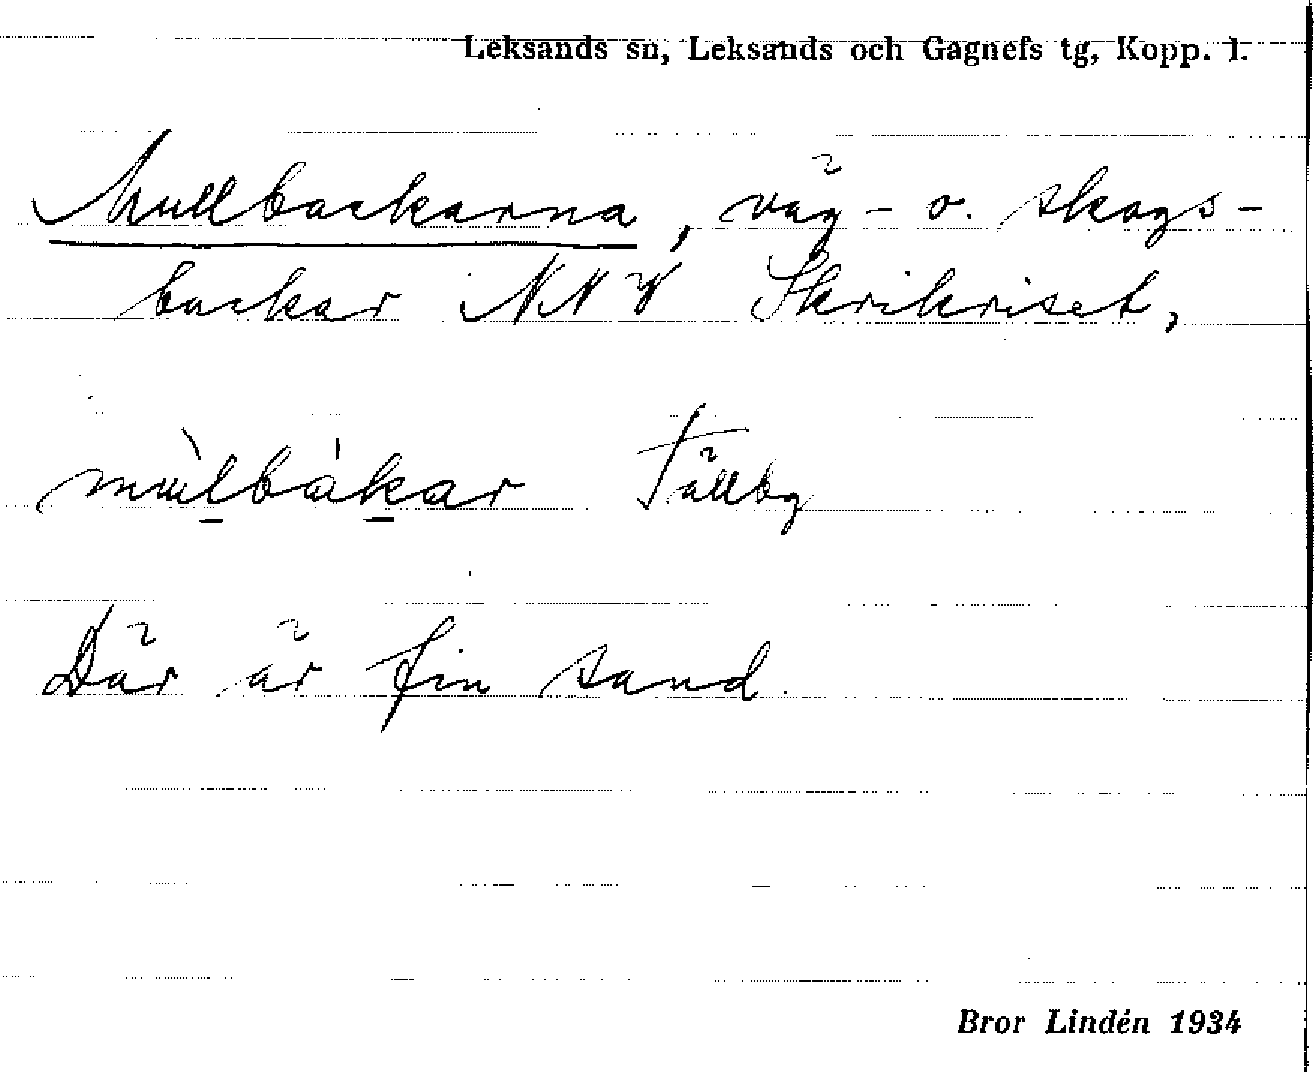 Leksands sn, Leksands och Gagnefs tg, Kopp. l.
Mullbackarna, väg- o. skogs-
backar NNV Skrikriset,
mùlbàkar Tällby
Där är fin sand.
Bror Lindén 1934